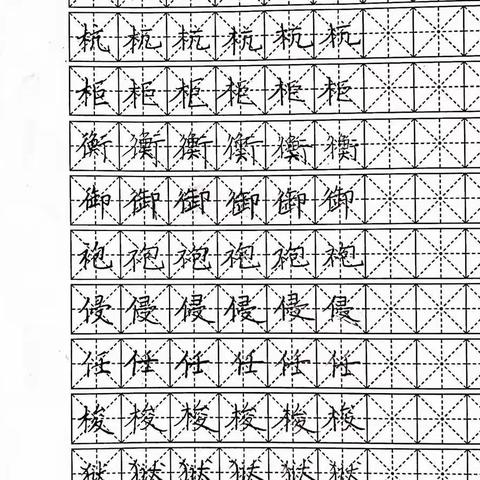 杭 杭 杭 杭 杭 杭
柜 柜 柜 柜 柜 柜
衡 衡 衡 衡 衡 衡
御 御 御 御 御 御
袍 袍 袍 袍 袍 袍
侵 侵 侵 侵 侵 侵
任 任 任 任 任 任
梭 梭 梭 梭 梭 梭
狱 狱 狱 狱 狱 狱